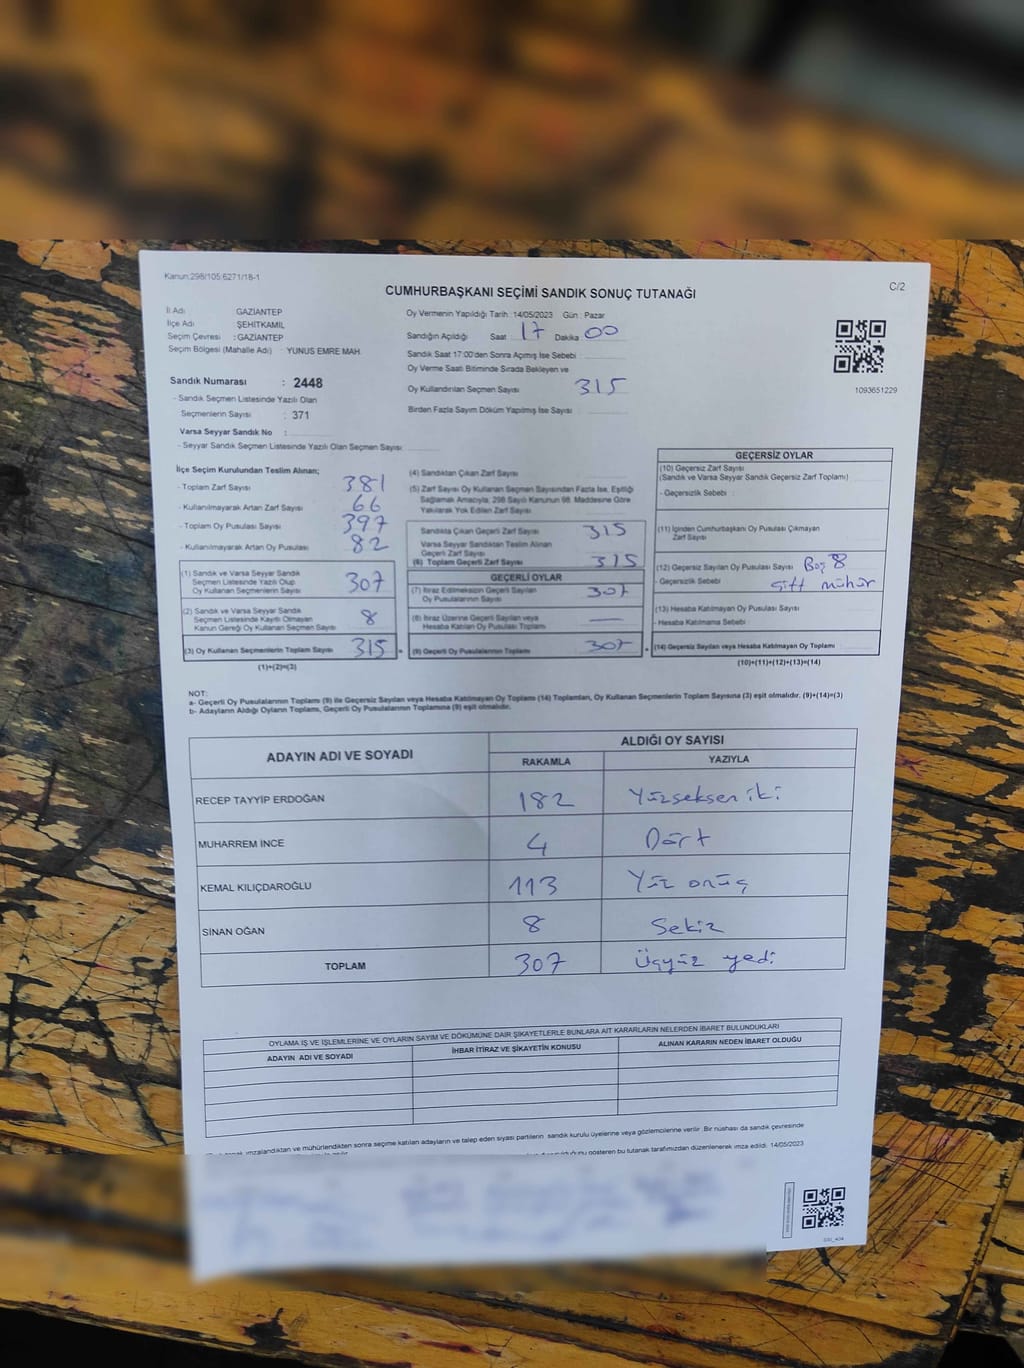 Kanun:298/105;6271/18-1
C/2
CUMHURBAŞKANI SEÇİMİ SANDIK SONUÇ TUTANAĞI
İl Adı GAZİANTEP
İlçe Adı ŞEHİTKAMİL
Seçim Çevresi : GAZİANTEP
Seçim Bölgesi (Mahalle Adı) : YUNUS EMRE MAH.
Sandık Numarası : 2448
- Sandık Seçmen Listesinde Yazılı Olan
Seçmenlerin Sayısı : 371
Varsa Seyyar Sandık No :
- Seyyar Sandık Seçmen Listesinde Yazılı Olan Seçmen Sayısı:
Oy Vermenin Yapıldığı Tarih :14/05/2023 Gün : Pazar
Sandığın Açıldığı Saat : 17 Dakika 00
Sandık Saat 17:00'den Sonra Açımış İse Sebebi :
Oy Verme Saati Bitiminde Sırada Bekleyen ve
Oy Kullandırılan Seçmen Sayısı 315
Birden Fazla Sayım Döküm Yapılmış İse Sayısı :
1093651229
İlçe Seçim Kurulundan Teslim Alınan;
- Toplam Zarf Sayısı 381
- Kullanılmayarak Artan Zarf Sayısı 66
- Toplam Oy Pusulası Sayısı 397
- Kullanılmayarak Artan Oy Pusulası 82
(1) Sandık ve Varsa Seyyar Sandık
Seçmen Listesinde Yazılı Olup
Oy Kullanan Seçmenlerin Sayısı 307
(2) Sandık ve Varsa Seyyar Sandık
Seçmen Listesinde Kayıtlı Olmayan
Kanun Gereği Oy Kullanan Seçmen Sayısı 8
(3) Oy Kullanan Seçmenlerin Toplam Sayısı 315 =
(1)+(2)=(3)
(4) Sandıktan Çıkan Zarf Sayısı
(5) Zarf Sayısı Oy Kullanan Seçmen Sayısından Fazla İse, Eşitliği
Sağlamak Amacıyla; 298 Sayılı Kanunun 98. Maddesine Göre
Yakılarak Yok Edilen Zarf Sayısı
Sandıkta Çıkan Geçerli Zarf Sayısı 315
Varsa Seyyar Sandıktan Teslim Alınan
Geçerli Zarf Sayısı
(6) Toplam Geçerli Zarf Sayısı 315
GEÇERLİ OYLAR
(7) İtiraz Edilmeksizin Geçerli Sayılan
Oy Pusulalarının Sayısı 307
(8) İtiraz Üzerine Geçerli Sayılan veya
Hesaba Katılan Oy Pusulası Toplamı —
(9) Geçerli Oy Pusulalarının Toplamı 307 +
GEÇERSİZ OYLAR
(10) Geçersiz Zarf Sayısı
(Sandık ve Varsa Seyyar Sandık Geçersiz Zarf Toplamı)
- Geçersizlik Sebebi :
(11) İçinden Cumhurbaşkanı Oy Pusulası Çıkmayan
Zarf Sayısı
(12) Geçersiz Sayılan Oy Pusulası Sayısı Boş 8
- Geçersizlik Sebebi Çift mühür
(13) Hesaba Katılmayan Oy Pusulası Sayısı
- Hesaba Katılmama Sebebi
(14) Geçersiz Sayılan veya Hesaba Katılmayan Oy Toplamı
(10)+(11)+(12)+(13)=(14)
NOT:
a- Geçerli Oy Pusulalarının Toplamı (9) ile Geçersiz Sayılan veya Hesaba Katılmayan Oy Toplamı (14) Toplamları, Oy Kullanan Seçmenlerin Toplam Sayısına (3) eşit olmalıdır. (9)+(14)=(3)
b- Adayların Aldığı Oyların Toplamı, Geçerli Oy Pusulalarının Toplamına (9) eşit olmalıdır.
ADAYIN ADI VE SOYADI ALDIĞI OY SAYISI
RAKAMLA YAZIYLA
RECEP TAYYİP ERDOĞAN 182 Yüzseksen iki
MUHARREM İNCE 4 Dört
KEMAL KILIÇDAROĞLU 113 Yüz onüç
SİNAN OĞAN 8 Sekiz
TOPLAM 307 Üçyüz yedi
OYLAMA İŞ VE İŞLEMLERİNE VE OYLARIN SAYIM VE DÖKÜMÜNE DAİR ŞİKAYETLERLE BUNLARA AİT KARARLARIN NELERDEN İBARET BULUNDUKLARI
ADAYIN ADI VE SOYADI İHBAR İTİRAZ VE ŞİKAYETİN KONUSU ALINAN KARARIN NEDEN İBARET OLDUĞU
imzalandıktan ve mühürlendikten sonra seçime katılan adayların ve talep eden siyasi partilerin sandık kurulu üyelerine veya gözlemcilerine verilir. Bir nüshası da sandık çevresinde
gösteren bu tutanak tarafımızdan düzenlenerek imza edildi. 14/05/2023